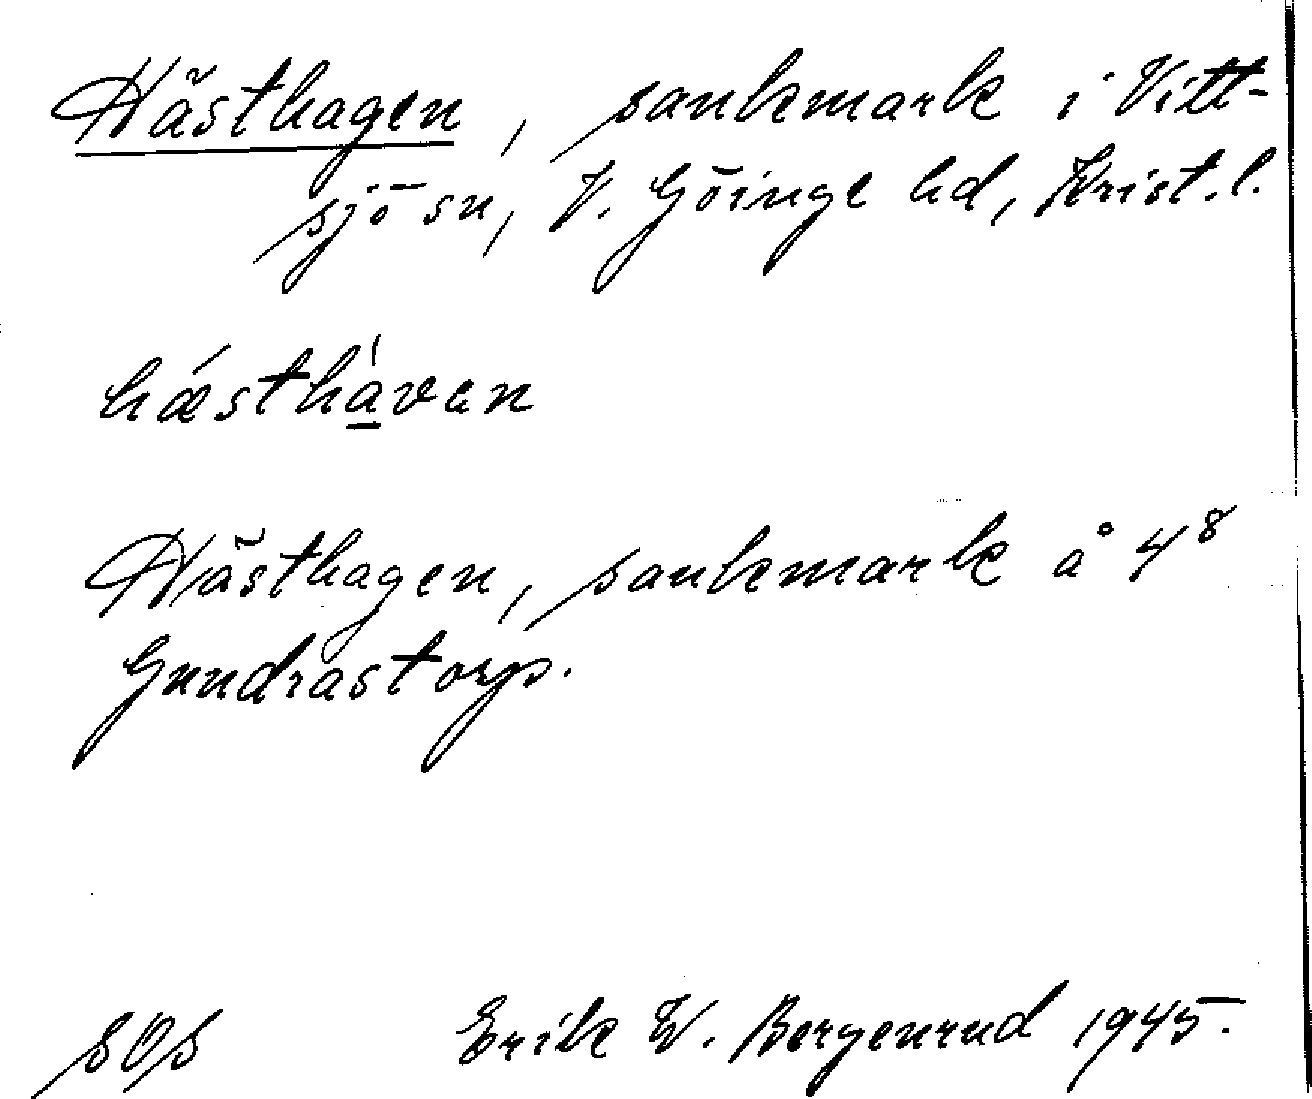 Hästhagen, sankmark i Vitt-
sjö sn, V. Göinge hd, Krist. l.
hǽsthàvan
Hästhagen, sankmark å 4⁸
Gundrastorp.
SOS Erik W. Borgenrud 1945.